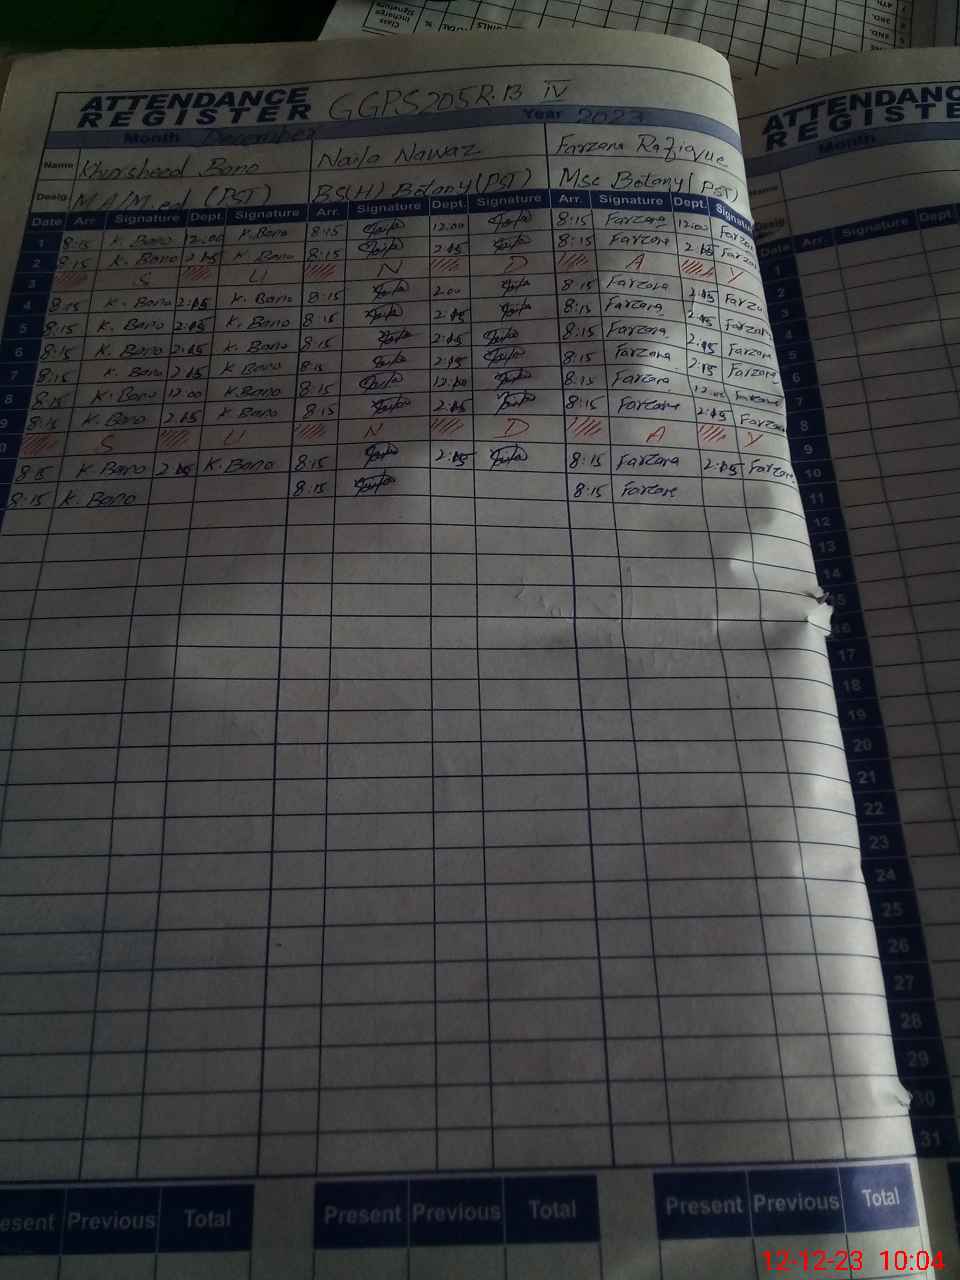 ATTENDANCE
REGISTER GGPS 205 R.B IV
Month December Year 2023
Name Khursheed Bano Naila Nawaz Farzana Rafique
Desig. MA/M.ed (PST) BS(H) Botany (PST) Msc Botany (PST)
Date Arr. Signature Dept. Signature Arr. Signature Dept. Signature Arr. Signature Dept. Signature
1 8:15 K. Bano 12:00 K. Bano 8:15 12:00 8:15 Farzana 12:00 Farzana
2 8:15 K. Bano 2:15 K. Bano 8:15 2:15 8:15 Farzana 2:15 Farzana
3 S U N D A Y
4 8:15 K. Bano 2:15 K. Bano 8:15 2:00 8:15 Farzana 2:15 Farzana
5 8:15 K. Bano 2:15 K. Bano 8:15 2:15 8:15 Farzana 2:15 Farzana
6 8:15 K. Bano 2:15 K. Bano 8:15 2:15 8:15 Farzana 2:15 Farzana
7 8:15 K. Bano 2:15 K. Bano 8:15 2:15 8:15 Farzana 2:15 Farzana
8 8:15 K. Bano 12:00 K. Bano 8:15 12:00 8:15 Farzana 12:00 Farzana
9 8:15 K. Bano 2:15 K. Bano 8:15 2:15 8:15 Farzana 2:15 Farzana
S U N D A Y
8:15 K. Bano 2:15 K. Bano 8:15 2:15 8:15 Farzana 2:15 Farzana
8:15 K. Bano 8:15 8:15 Farzana
Present Previous Total Present Previous Total Present Previous Total
ATTENDANCE
REGISTER
Month
Name
Desig
Date Arr. Signature Dept.
1
2
3
4
5
6
7
8
9
10
11
12
13
14
15
16
17
18
19
20
21
22
23
24
25
26
27
28
29
30
31
12-12-23 10:04